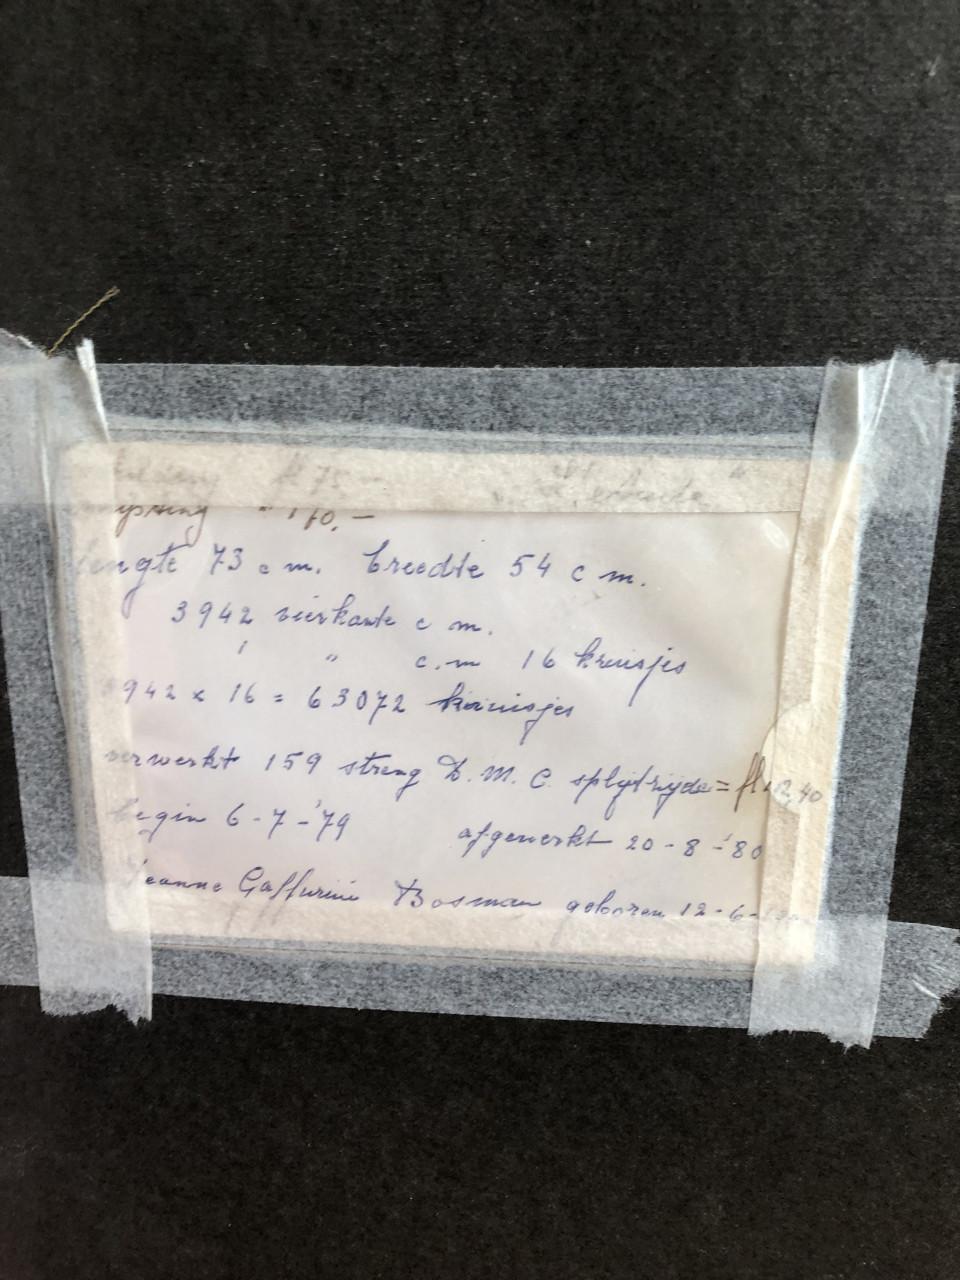 fl 75
" 170,-
lengte 73 cm. breedte 54 cm.
3942 vierkante cm.
1 " c.m 16 kruisjes
3942 x 16 = 63072 kruisjes
verwerkt 159 streng D.M.C. splijtzijde = fl.
begin 6-7-'79 afgewerkt 20-8-'80
Jeanne Gaffurini Bosman geboren 12-6-